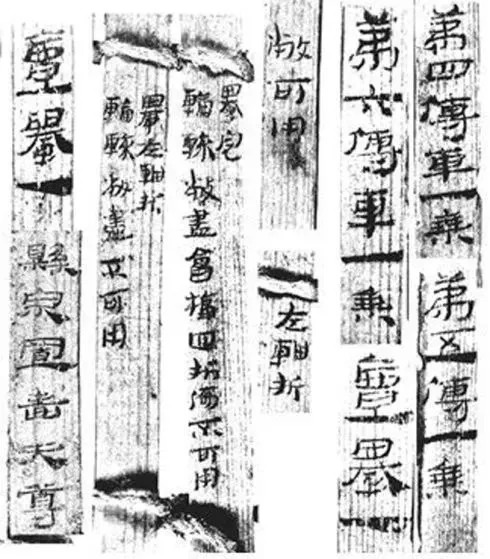 第四傳車一乘
第五傳一乘
第六傳車一乘
亶轝一
敝可用
左軸折
轝完
輪轑敝盡會楅四折傷不可用
轝左軸折
輪轑敝盡不可用
亶轝一
縣泉置嗇夫尊